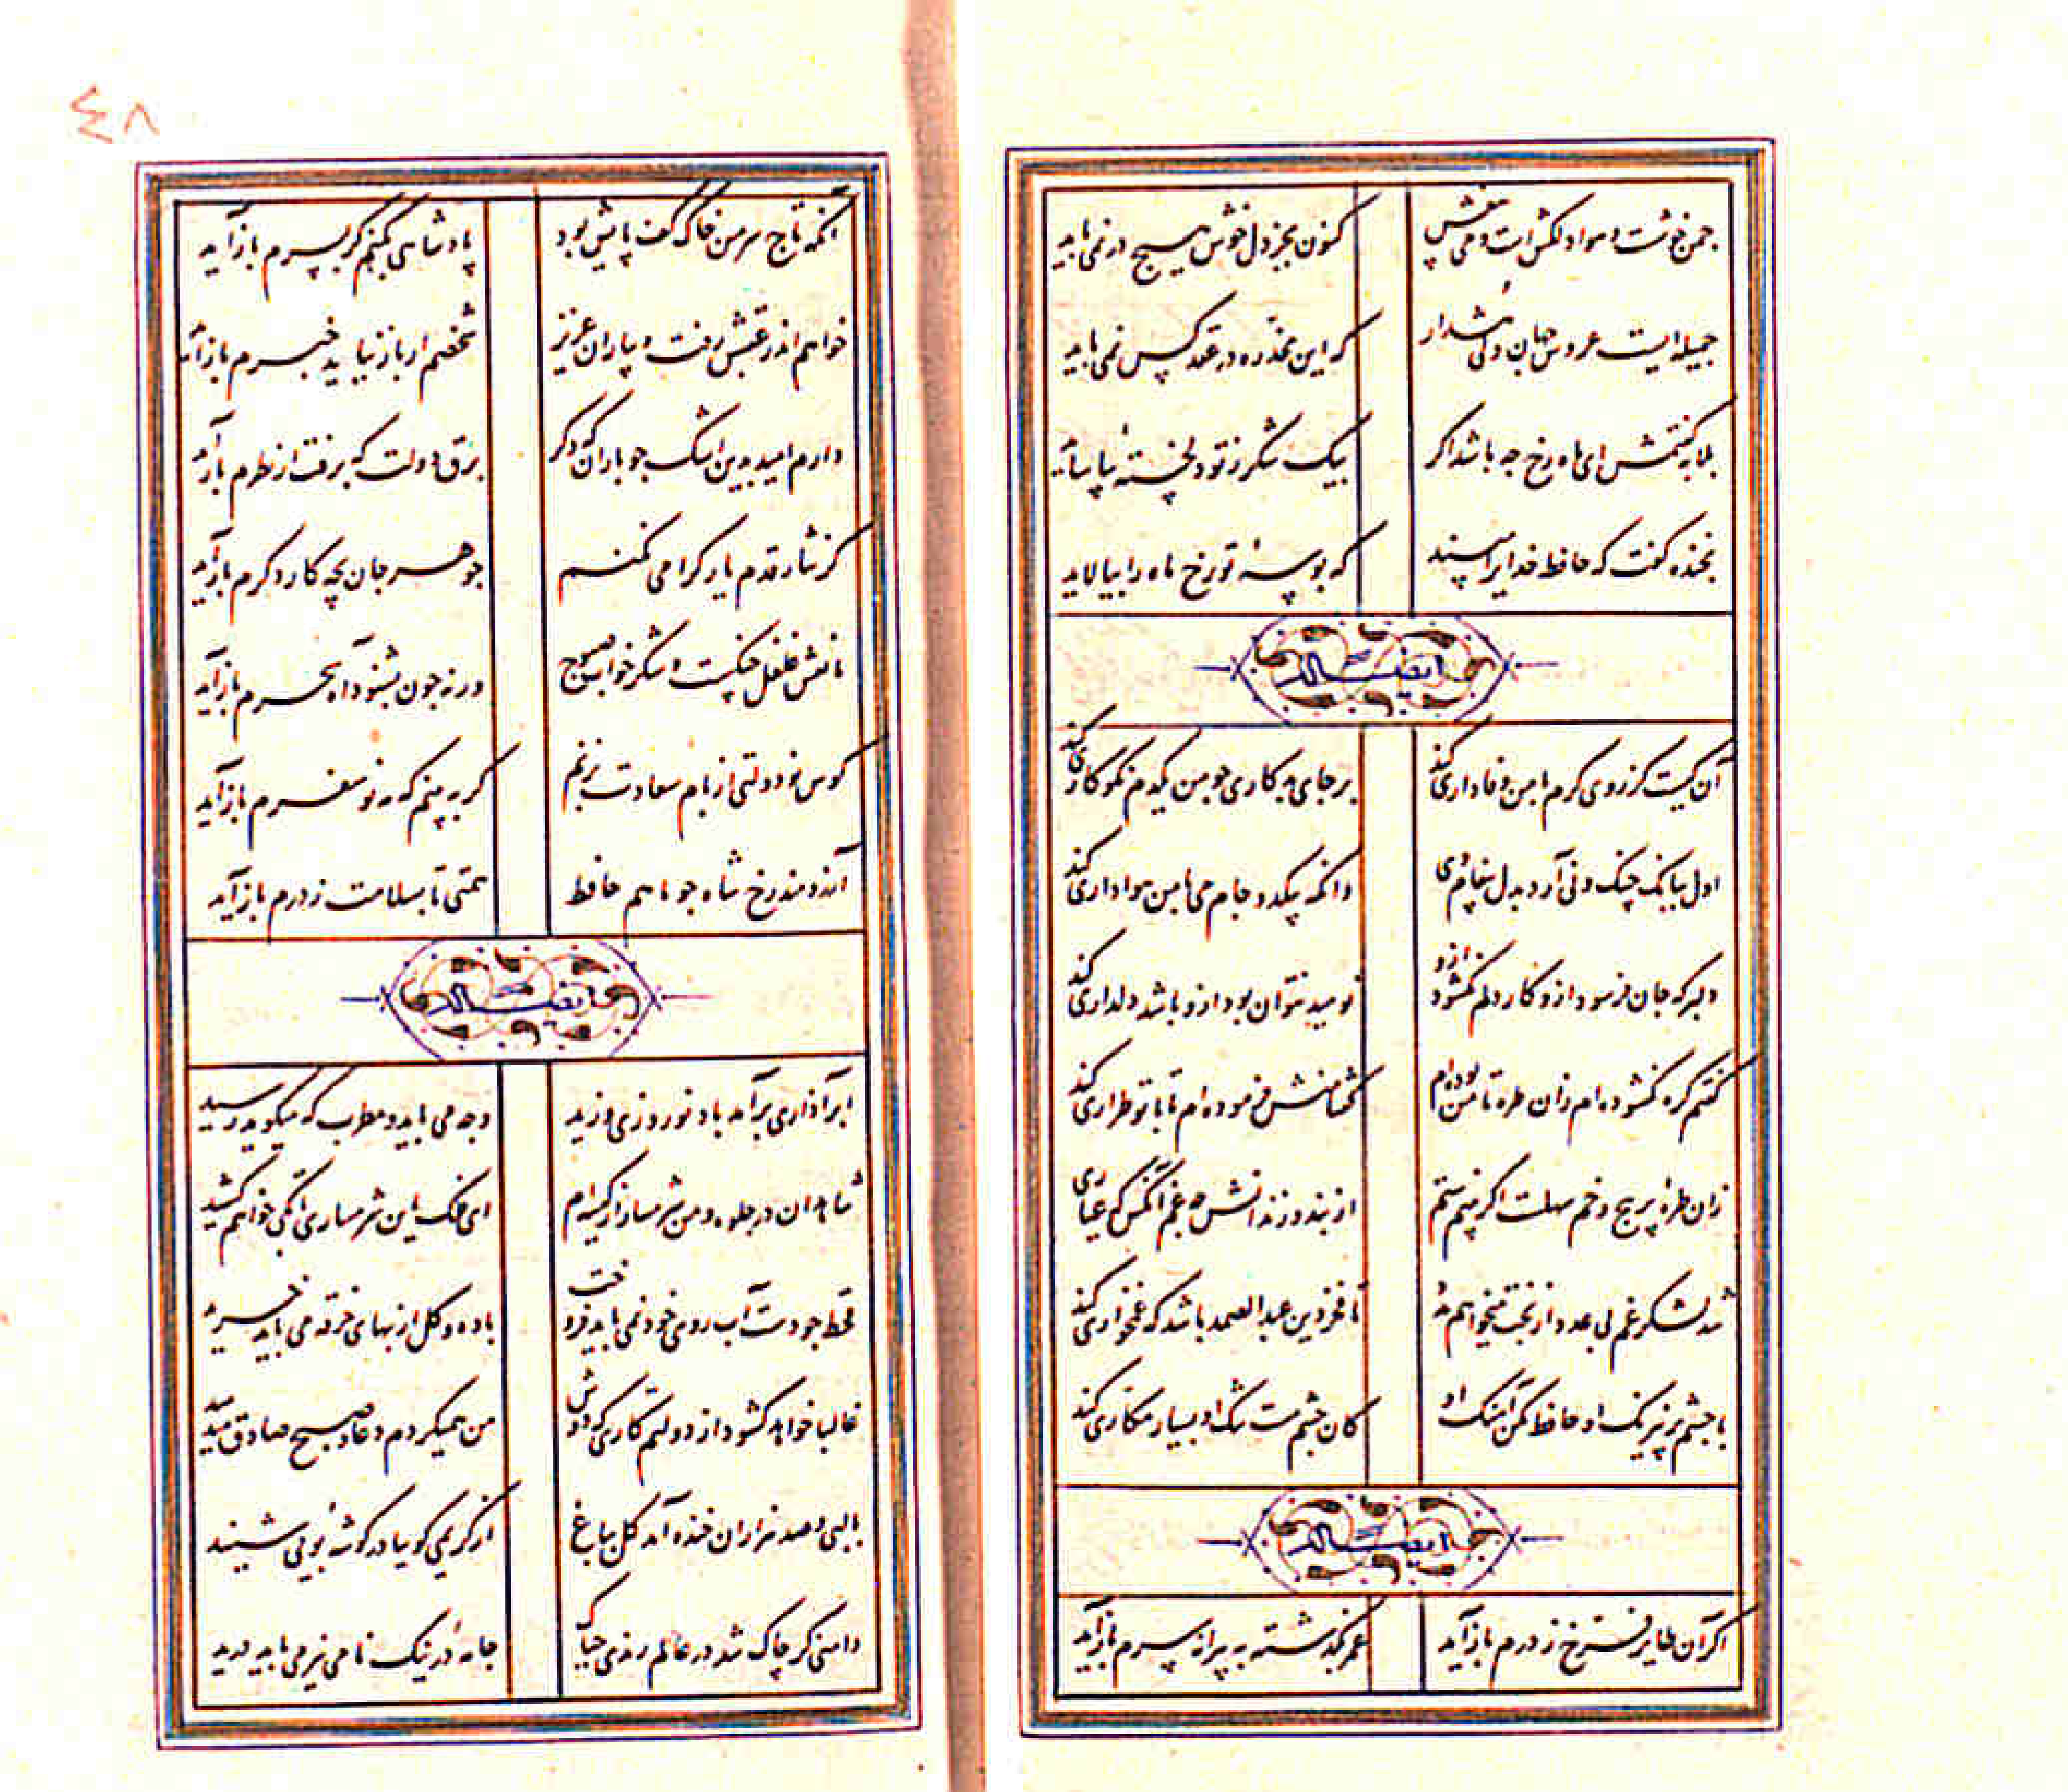 چمن خوشست و هوا دلکش است و می بیغش
کنون بجز دل خوش هیچ در نمی باید
جمیله ایست عروس جهان ولی هشدار
که این مخدره در عقد کس نمی باید
بلابه گفتمش ای ماه رخ چه باشد اگر
بیک شکر ز تو دلخستهٔ بیاساید
بخنده گفت که حافظ خدایرا مپسند
که بوسهٔ تو رخ ماه را بیالاید
ایضاً له
آن کیست کز روی کرم با من وفاداری کند
بر جای بدکاری چو من یکدم نکوکاری کند
اول ببانک چنک و نی آرد بدل پیغام وی
وانکه بیک دو جام می با من هواداری کند
دلبر که جان فرسود ازو کار دلم نکشود ازو
نومید نتوان بود ازو باشد دلداری کند
گفتم گره نگشوده ام زان طره تا من بوده ام
گفتا منش فرموده ام تا با تو طراری کند
زان طرهٔ پر پیچ و خم سهلست اگر بینم ستم
از بند و زندانش چه غم آنکس که عیاری کند
شد لشکر غم بی عدد از بخت میخواهم مدد
تا فخر دین عبدالصمد باشد که غمخواری کند
با چشم پر نیرنک او حافظ مکن آهنک او
کان چشم مست شنک او بسیار مکاری کند
ایضاً له
اگر آن طایر فرخ ز درم باز آید
عمر بگذشته به پیرانه سرم باز آید
٤٨
آنکه تاج سر من خاک کف پایش بود
پادشاهی بکنم گر بسرم باز آید
خواهم اندر عقبش رفت و بیاران عزیز
شخصم ار باز نیاید خبرم باز آید
دارم امید بدین اشک چو باران که دگر
برق دولت که برفت از نظرم باز آید
گر نثار قدم یار گرامی نکنم
جوهر جان بچه کار دگرم باز آید
مانعش غلغل چنگست و شکر خواب صبوح
ورنه چون بشنود آه سحرم باز آید
کوس نو دولتی از بام سعادت بزنم
گر به بینم که مه نو سفرم باز آید
آرزومند رخ شاه چو ماهم حافظ
همتی تا بسلامت ز درم باز آید
ایضاً له
ابر آذاری برآمد باد نوروزی وزید
وجه می باید و مطرب که میگوید رسید
شاهدان در جلوه و من شرمسار از کیسه ام
ای فلک این شرمساری تا بکی خواهم کشید
قحط جودست آب روی خود نمی باید فروخت
باده و گل از بهای خرقه می باید خرید
غالبا خواهد گشود از دولتم کاری که دوش
من همیکردم دعا و صبح صادق میدمید
با لبی و صد هزاران خنده آمد گل بباغ
از کریمی گوییا در گوشهٔ بویی شنید
دامنی گر چاک شد در عالم رندی چه باک
جامهٔ در نیک نامی نیز می باید درید